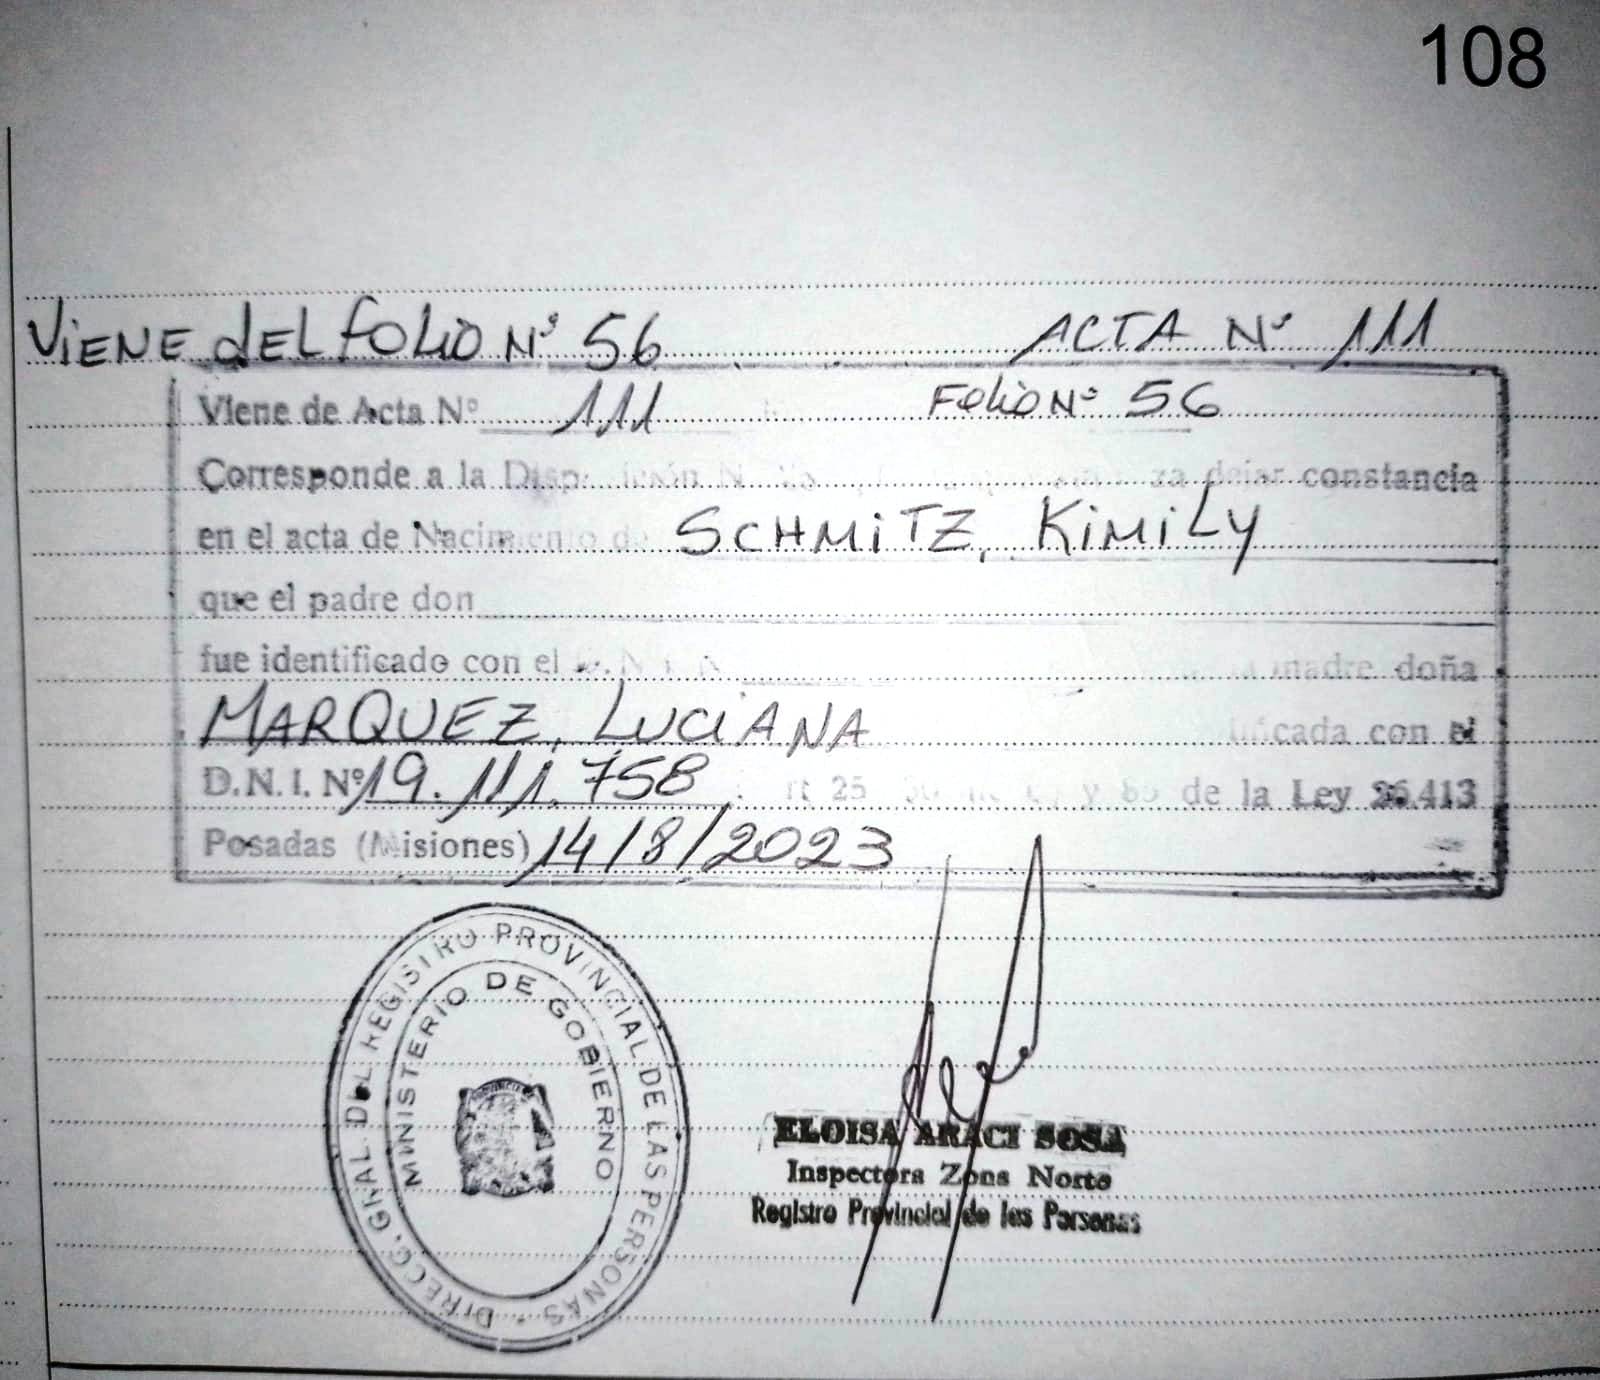 108
ViENE dEL FOLiO Nº 56 ACTA Nº 111
Viene de Acta Nº 111 FoLiO Nº 56
Corresponde a la dejar constancia
en el acta de Nacimiento de SCHMiTZ, KiMiLY
que el padre don
fue identificado con el D.N.I. N la madre doña
MARQUEZ, LUCiANA ificada con el
D.N.I. Nº 19.111.758 rt 25 y 85 de la Ley 26.413
Posadas (Misiones) 14/8/2023
DIRECC. GRAL. DEL REGISTRO PROVINCIAL DE LAS PERSONAS
MINISTERIO DE GOBIERNO
ELOISA ARACI SOSA
Inspectora Zona Norte
Registro Provincial de las Personas